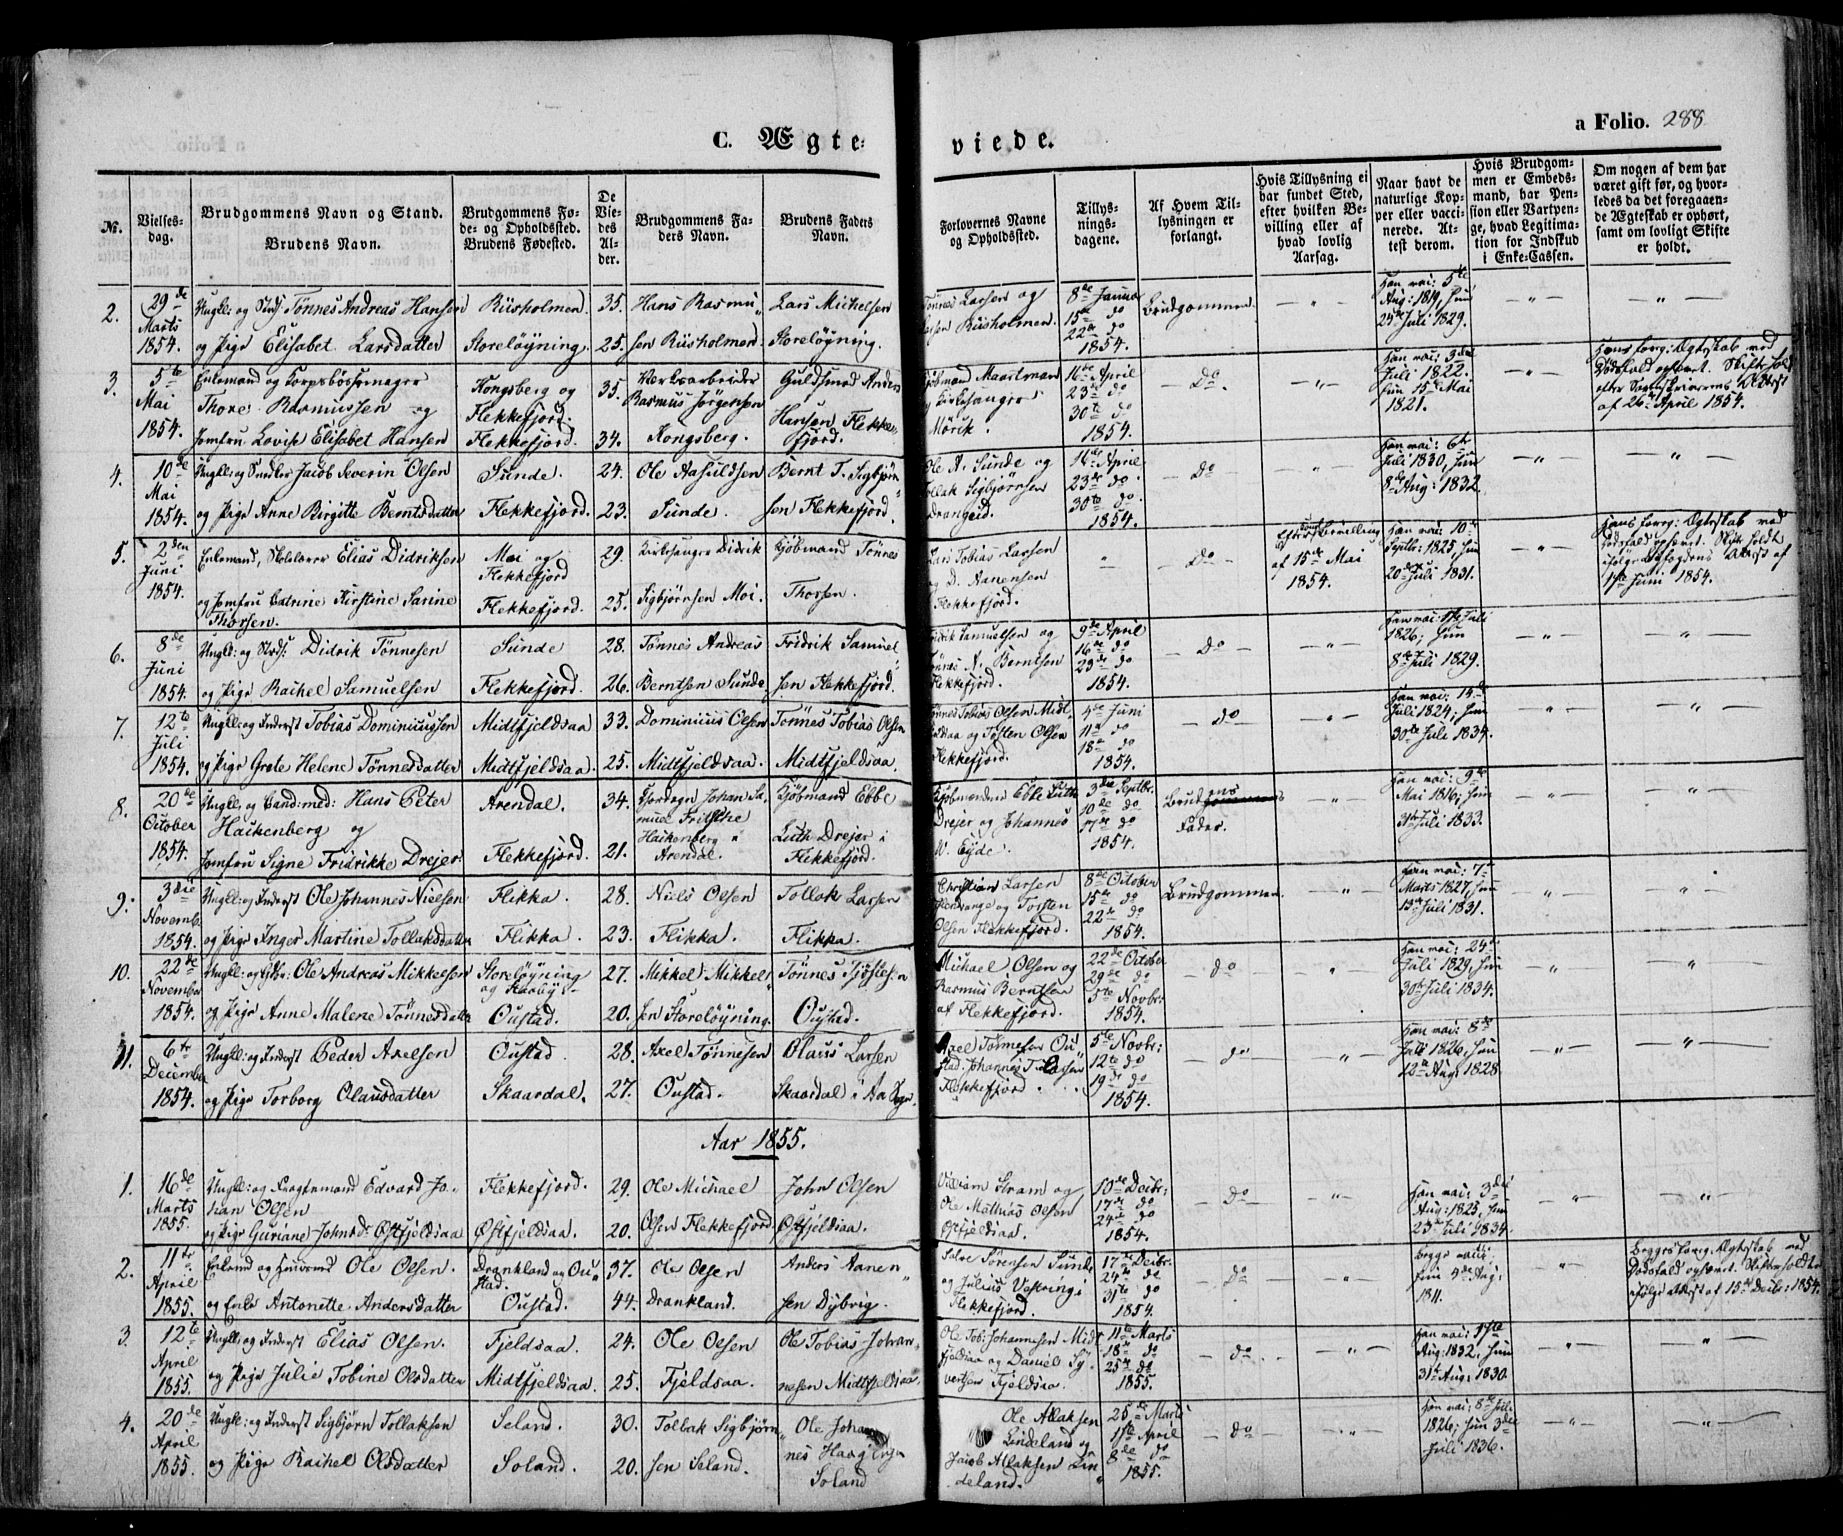 C. Ægte-
viede.
a Folio. 288
№.
Vielses-
dag.
Brudgommens Navn og Stand.
Brudens Navn.
Brudgommens Fø-
de- og Opholdssted.
Brudens Fødested.
De
Vie-
des
Al-
der.
Brudgommens Fa-
ders Navn.
Brudens Faders
Navn.
Forlovernes Navne
og Opholdssted.
Tillys-
nings-
dagene.
Af Hvem Til-
lysningen er
forlangt.
Hvis Tillysning ei
har fundet Sted,
efter hvilken Be-
villing eller af
hvad lovlig
Aarsag.
Naar havt de
naturlige Kop-
per eller vacci-
nerede. At-
test derom.
Hvis Brudgom-
men er Embeds-
mand, har Pen-
sion eller Vartpen-
ge, hvad Legitima-
tion for Indskud
i Enke-Cassen.
Om nogen af dem har
været gift før, og hvor-
ledes da det foregaaen-
de Ægteskab er ophørt,
samt om lovligt Skifte
er holdt.
2.
29de
Marts
1854.
Ungk: og Strds: Tönnes Andreas Hansen
og Pige Elisabet Larsdatter
Riisholmen
Storelöyning.
35.
25.
Hans Rasmu
sen Riisholmen
Lars Michelsen
Storelöyning.
Tönnes Larsen og
Larsen Riisholmen.
8de Januar
15de do
22de do
1854.
Brudgommen
Han vai: 5te
Aug: 1819, hun
24de Juli 1829.
3.
5te
Mai
1854.
Enkemand og Korpsbössemager
Thore Rasmussen og
Jomfru Lovise Elisabet Hansen
Kongsberg og
Flekkefjord.
Flekkefjord.
35.
34.
Værksarbeider
Rasmus Jörgensen
Kongsberg.
Guldsmed Anders
Hansen Flekke-
fjord.
Kjöbmand Maartman
og Kirkesanger
Mörik.
16de April
23de do
30te do
1854.
Do
Han vai: 3die
Juli 1822.
Hun 15de Mai
1821.
Hans foreg: Ægteskab ved
Dödsfald ophævet. Skifte holdt
efter Sorenskriverens Attest
af 26de April 1854.
4.
10de
Mai
1854.
Ungk: og Snedker Jacob Severin Olsen
og Pige Anne Birgitte Berntsdatter
Sunde
Flekkefjord.
24.
23.
Ole Aasuldsen
Sunde.
Bernt T. Sigbjörn
sen Flekkefjord.
Ole A. Sunde og
Tollak Sigbjörnsen
Drangeid.
16de April
23de do
30te do
1854.
Do
Han vai: 6te
Juli 1830, hun
8de Aug: 1832.
5.
2den
Juni
1854.
Enkemand, Skolelærer Elias Didriksen
og Jomfru Catrine Kirstine Sarine
Thorsen.
Moi og
Flekkefjord
Flekkefjord.
29.
25.
Kirkesanger Didrik
Sigbjörnsen Moi.
Kjöbmand Tönnes
Thorsen.
Lars Tobias Larsen
og D. Aanensen
Flekkefjord.
Do
Kongebevilling
af 15de Mai
1854.
Han vai: 10de
Septbr: 1825, hun
20de Juli 1831.
Hans foreg: Ægteskab ved
Dödsfald ophævet. Skifte holdt
ifölge Byfogdens Attest af
1ste Juni 1854.
6.
8de
Juni
1854.
Ungk: og Strds: Didrik Tönnesen
og Pige Rachel Samuelsen
Sunde
Flekkefjord.
28.
26.
Tönnes Andreas
Berntsen Sunde.
Fridrik Samuel
sen Flekkefjord.
Fridrik Samuelsen og
Tönnes A. Berntsen
Flekkefjord.
9de April
16de do
23de do
1854.
Do
Han vai: 1ste Juli
1826; hun
8de Juli 1829.
7.
12te
Juli
1854.
Ungk: og Inderst Tobias Dominiiussen
og Pige Grete Helene Tönnesdatter
Midtfjeldsaa
Midtfjeldsaa.
33.
25.
Dominiius Olsen
Midtfjeldsaa.
Tönnes Tobias Olsen
Midtfjeldsaa.
Tönnes Tobias Olsen Midt
fjeldsaa og Tosten Olsen
Flekkefjord.
4de Juni
11te do
18de do
1854.
Do
Han vai: 14de
Juli 1824; hun
30te Juli 1834.
8.
20de
October
1854.
Ungk. og Cand: med: Hans Peter
Hackenberg og
Jomfru Signe Fridrikke Drejer
Arendal.
Flekkefjord.
34.
21.
Toldbetj. Johan Sa
muel Fritsche
Hackenberg i
Arendal.
Kjöbmand Ebbe
Luth Drejer i
Flekkefjord.
Kjöbmændene Ebbe Luth
Drejer og Johannes
W. Eyde.
3die Septbr.
10de do
17de do
1854.
Brudens
Fader.
Han vai: 9de
Mai 1816; hun
31te Juli 1833.
9.
3die
Novemb.
1854.
Ungk: og Inderst Ole Johannes Nielsen
og Pige Inger Martine Tollaksdatter
Flikka.
Flikka.
28.
23.
Niels Olsen
Flikka.
Tollak Larsen
Flikka.
Christian Larsen
Hendrange og Torsten
Olsen Flekkefjord.
8de October
15de do
22de do
1854.
Brudgommen
Han vai: 7de
Marts 1827, hun
13de Juli 1831.
10.
22de
November
1854.
Ungk: og Gbr. Ole Andreas Mikkelsen
og Pige Anne Malene Tönnesdatter
Storelöyning
og Haaby.
Oustad.
27.
20.
Mikkel Mikkel
sen Storelöyning.
Tönnes Tjöstelsen
Oustad.
Michael Olsen og
Rasmus Berntsen
af Flekkefjord.
22de October
29de do
5te Novbr:
1854.
Do
Han vai: 24de
Juli 1829, hun
30te Juli 1834.
11.
6te
December
1854.
Ungk: og Inderst Peder Axelsen
og Pige Torborg Olausdatter
Oustad.
Skaardal.
28.
27.
Axel Tönnesen
Oustad.
Olaus Larsen
Skaardal i Aa Sogn.
Axel Tönnesen Ou
stad. Johannes T. Larsen
Flekkefjord.
5te Novbr:
12te do
19de do
1854.
Do
Han vai: 8de
Juli 1826, hun
12te Aug: 1828.
Aar 1855.
1.
16de
Marts
1855.
Ungk: og Fragtemand Edvard Jo-
han Olsen
og Pige Guriane Johnsd: Östfjeldsaa
Flekkefjord.
Östfjeldsaa.
29.
20.
Ole Michael
Olsen Flekkefjord.
John Olsen
Östfjeldsaa.
William Stram og
Ole Mathias Olsen
Östfjeldsaa.
10de Decbr:
17de do
24de do
1854.
Do
Han vai: 3die
Aug: 1825, hun
23de Juli 1834.
2.
11te
April
1855.
Enkemd og Huusmd Ole Olsen
og Enke Antonette Andersdatter
Drankland og Ou
stad.
Oustad.
37.
44.
Ole Olsen
Drankland.
Anders Aanen
sen Dybvig.
Salve Sörensen Sunde
og Julius Vekring i
Flekkefjord.
17de Decbr:
24de do
31te do
1854.
Do
Begge vacc:
hun 4de Aug:
1811.
Begges foreg. Ægteskab ved
Dödsfald ophævet. Skifte holdt
ifölge Attest af 15de Decbr: 1854.
3
12te
April
1855.
Ungk: og Inderst Elias Olsen.
og Pige Julie Tobine Olsdatter
Fjeldsaa.
Midtfjeldsaa.
24.
25.
Ole Olsen
Fjeldsaa.
Ole Tobias Johan
nesen Midtfjeldsaa
Ole Tob: Johannesen Midt
fjeldsaa og Daniel Sy
vertsen Fjeldsaa.
11te Marts
18de do
25de do
1855.
Do
Han vai: 17te
Aug: 1832, hun
31te Aug: 1830.
4.
20de
April
1855.
Ungk: og Inderst Sigbjörn Tollaksen
og Pige Rachel Olsdatter
Seland.
Soland.
30.
20.
Tollak Sigbjörn
sen Seland.
Ole Johan
nes Haagensen
Soland
Ole Atlaksen
Lindeland og
Jacob Atlaksen Lin
deland.
25de Marts
1ste April
8de do
1855.
Do
Han vai: 8de Juli
1826; hun 3die
Juli 1836.